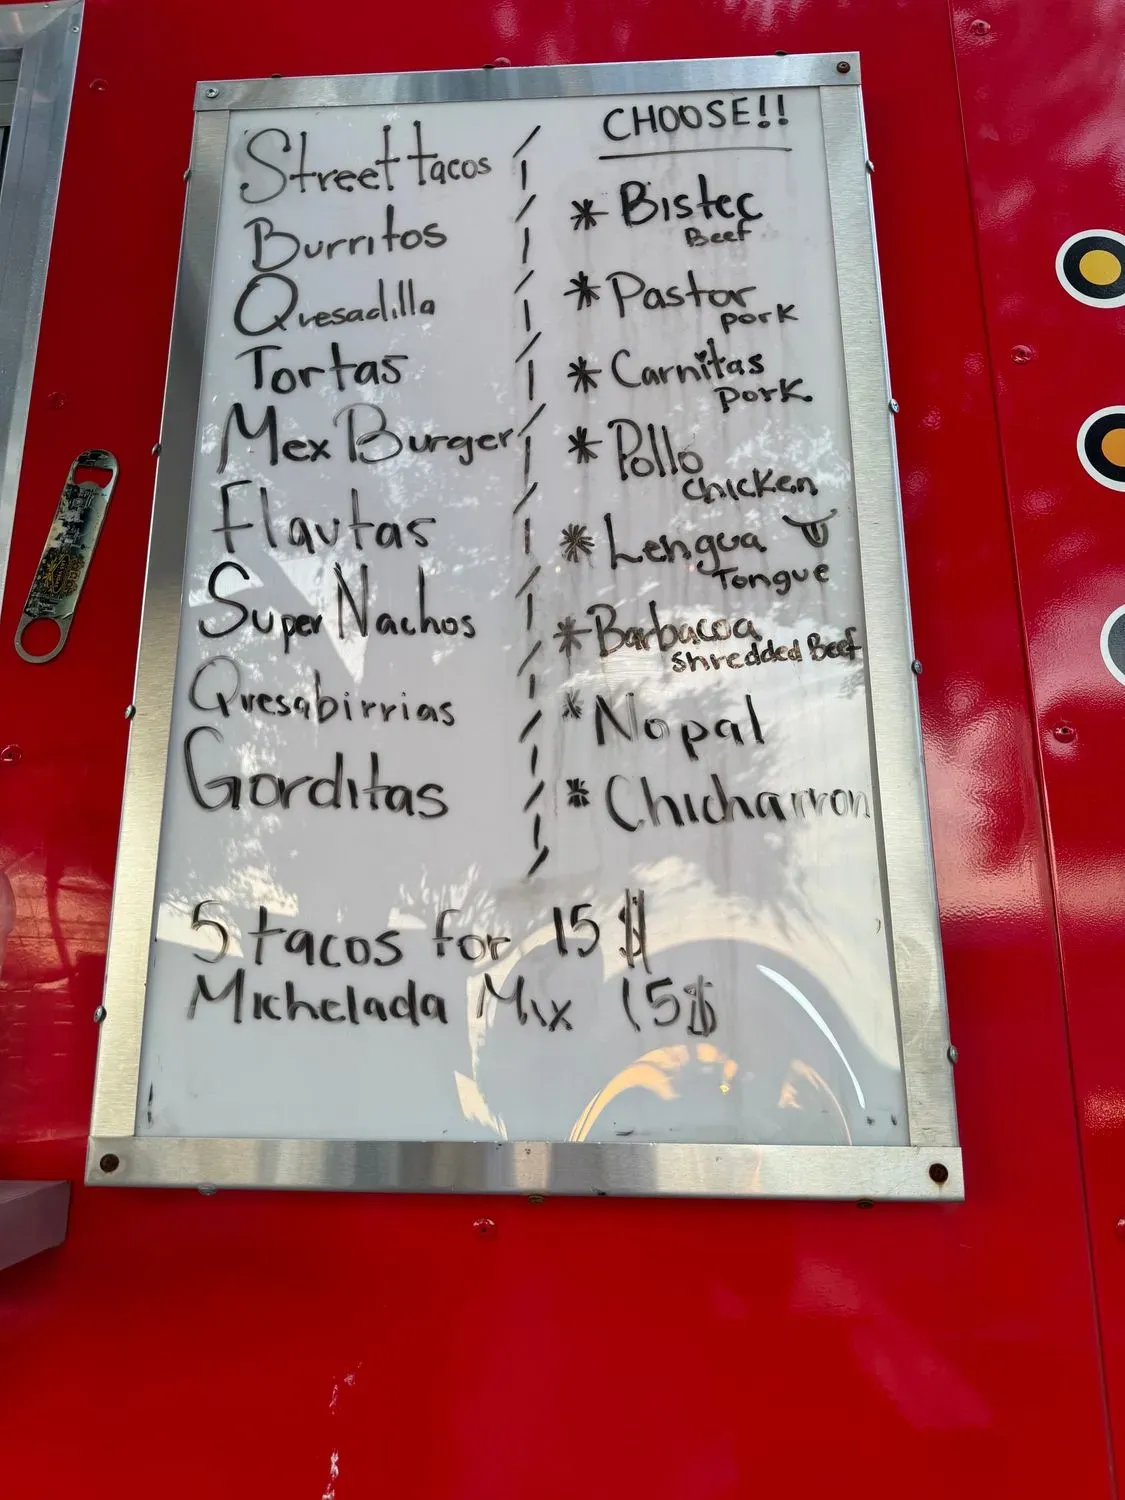 Street tacos
Burritos
Quesadilla
Tortas
Mex Burger
Flautas
Super Nachos
Quesabirrias
Gorditas
CHOOSE!!
* Bistec
Beef
* Pastor
pork
* Carnitas
pork.
* Pollo
chicken
* Lengua
Tongue
* Barbacoa
shredded Beef
* Nopal
* Chicharron
5 tacos for 15 $
Michelada Mix 15$